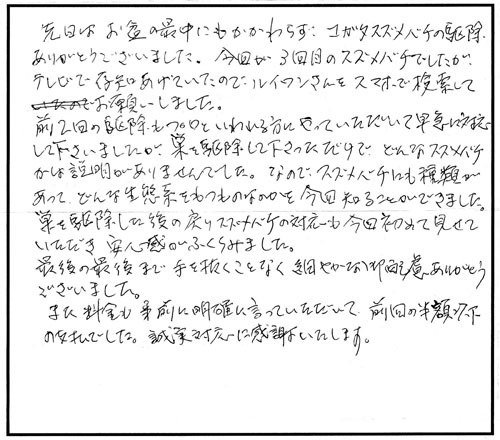 先日はお盆の最中にもかかわらず、コガタスズメバチの駆除
ありがとうございました。今回が3回目のスズメバチでしたが、
テレビで存知あげていたので、ルイワンさんをスマホで検索して
お願いしました。
前2回の駆除もプロといわれる方にやっていただいて早急に対応
して下さいましたが、巣を駆除して下さっただけで、どんなスズメバチ
かは説明がありませんでした。なので、スズメバチにも種類が
あって、どんな生態系をもつものなのかを今回知ることができました。
巣を駆除した後の戻りスズメバチの対応も今回初めて見せて
いただき安心感がふくらみました。
最後の最後まで手を抜くことなく細やかな御配慮ありがとう
ございました。
また料金も事前に明確に言っていただいて、前回の半額以下
の支払でした。誠実な対応に感謝いたします。